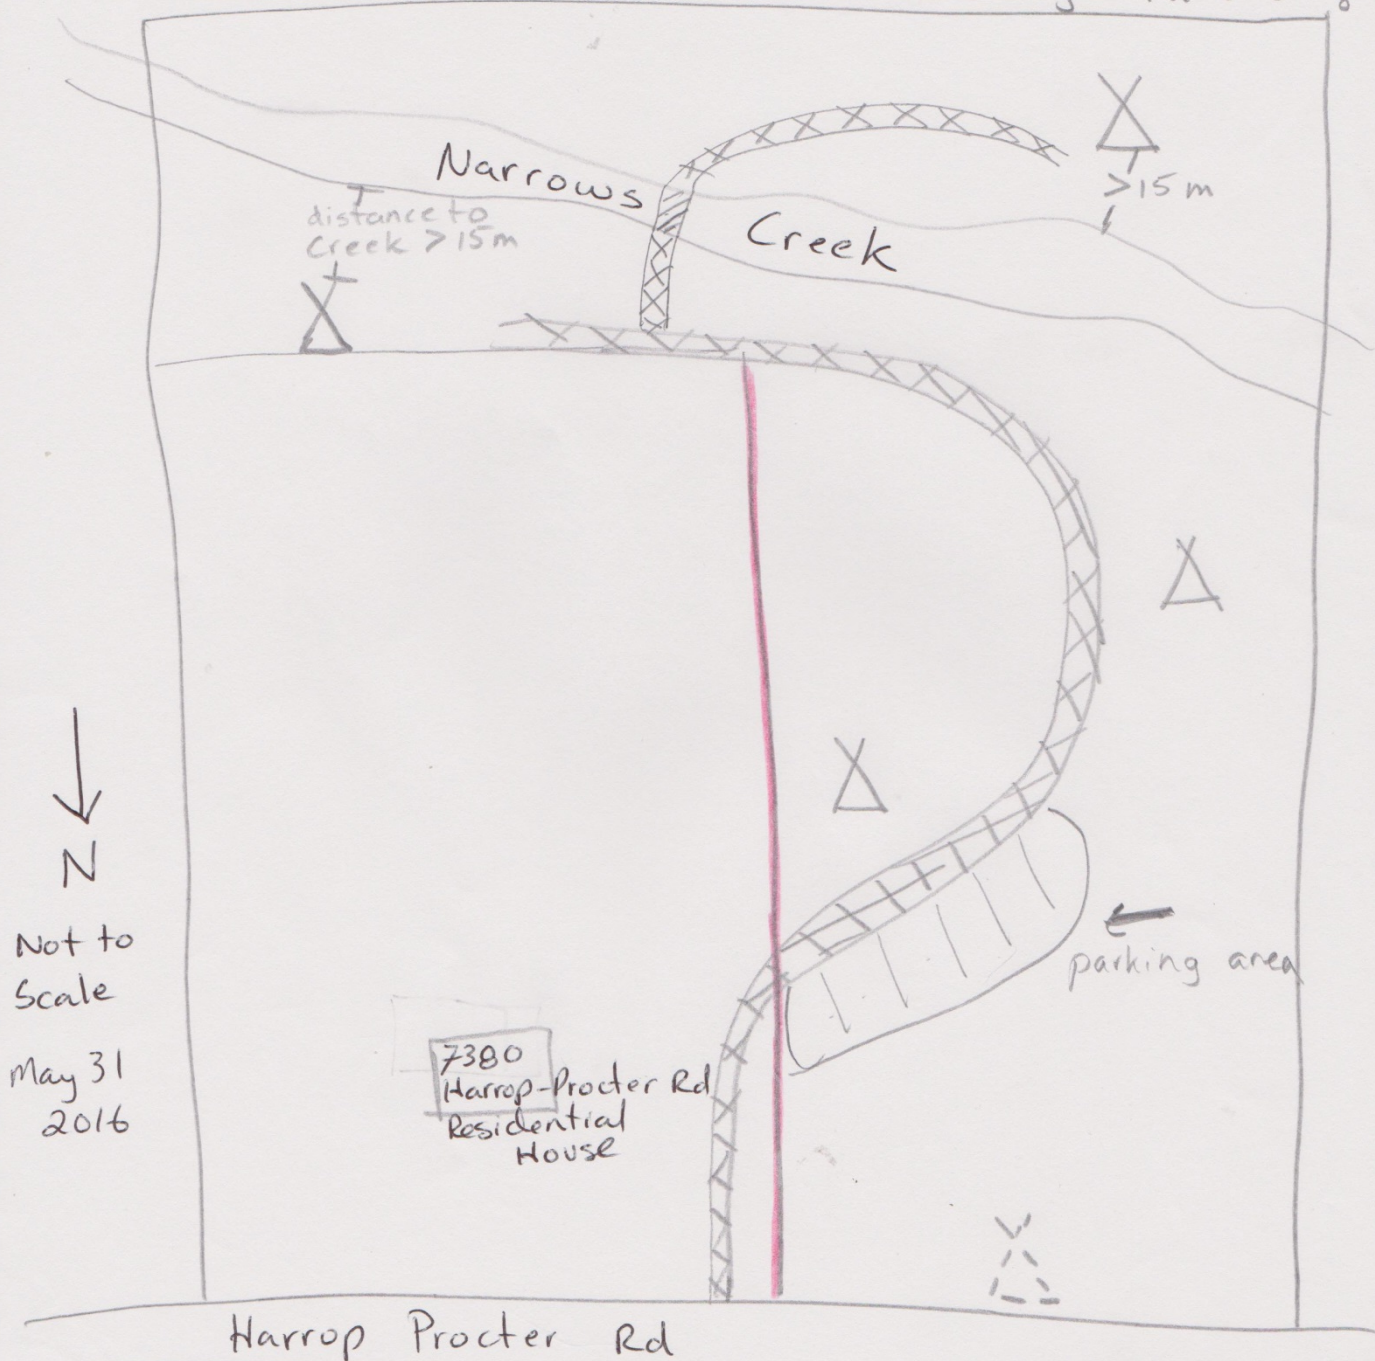 Narrows
Creek
>15 m
distance to
Creek >15m
N
Not to
Scale
May 31
2016
parking area
7380
Harrop-Procter Rd
Residential
House
Harrop Procter Rd